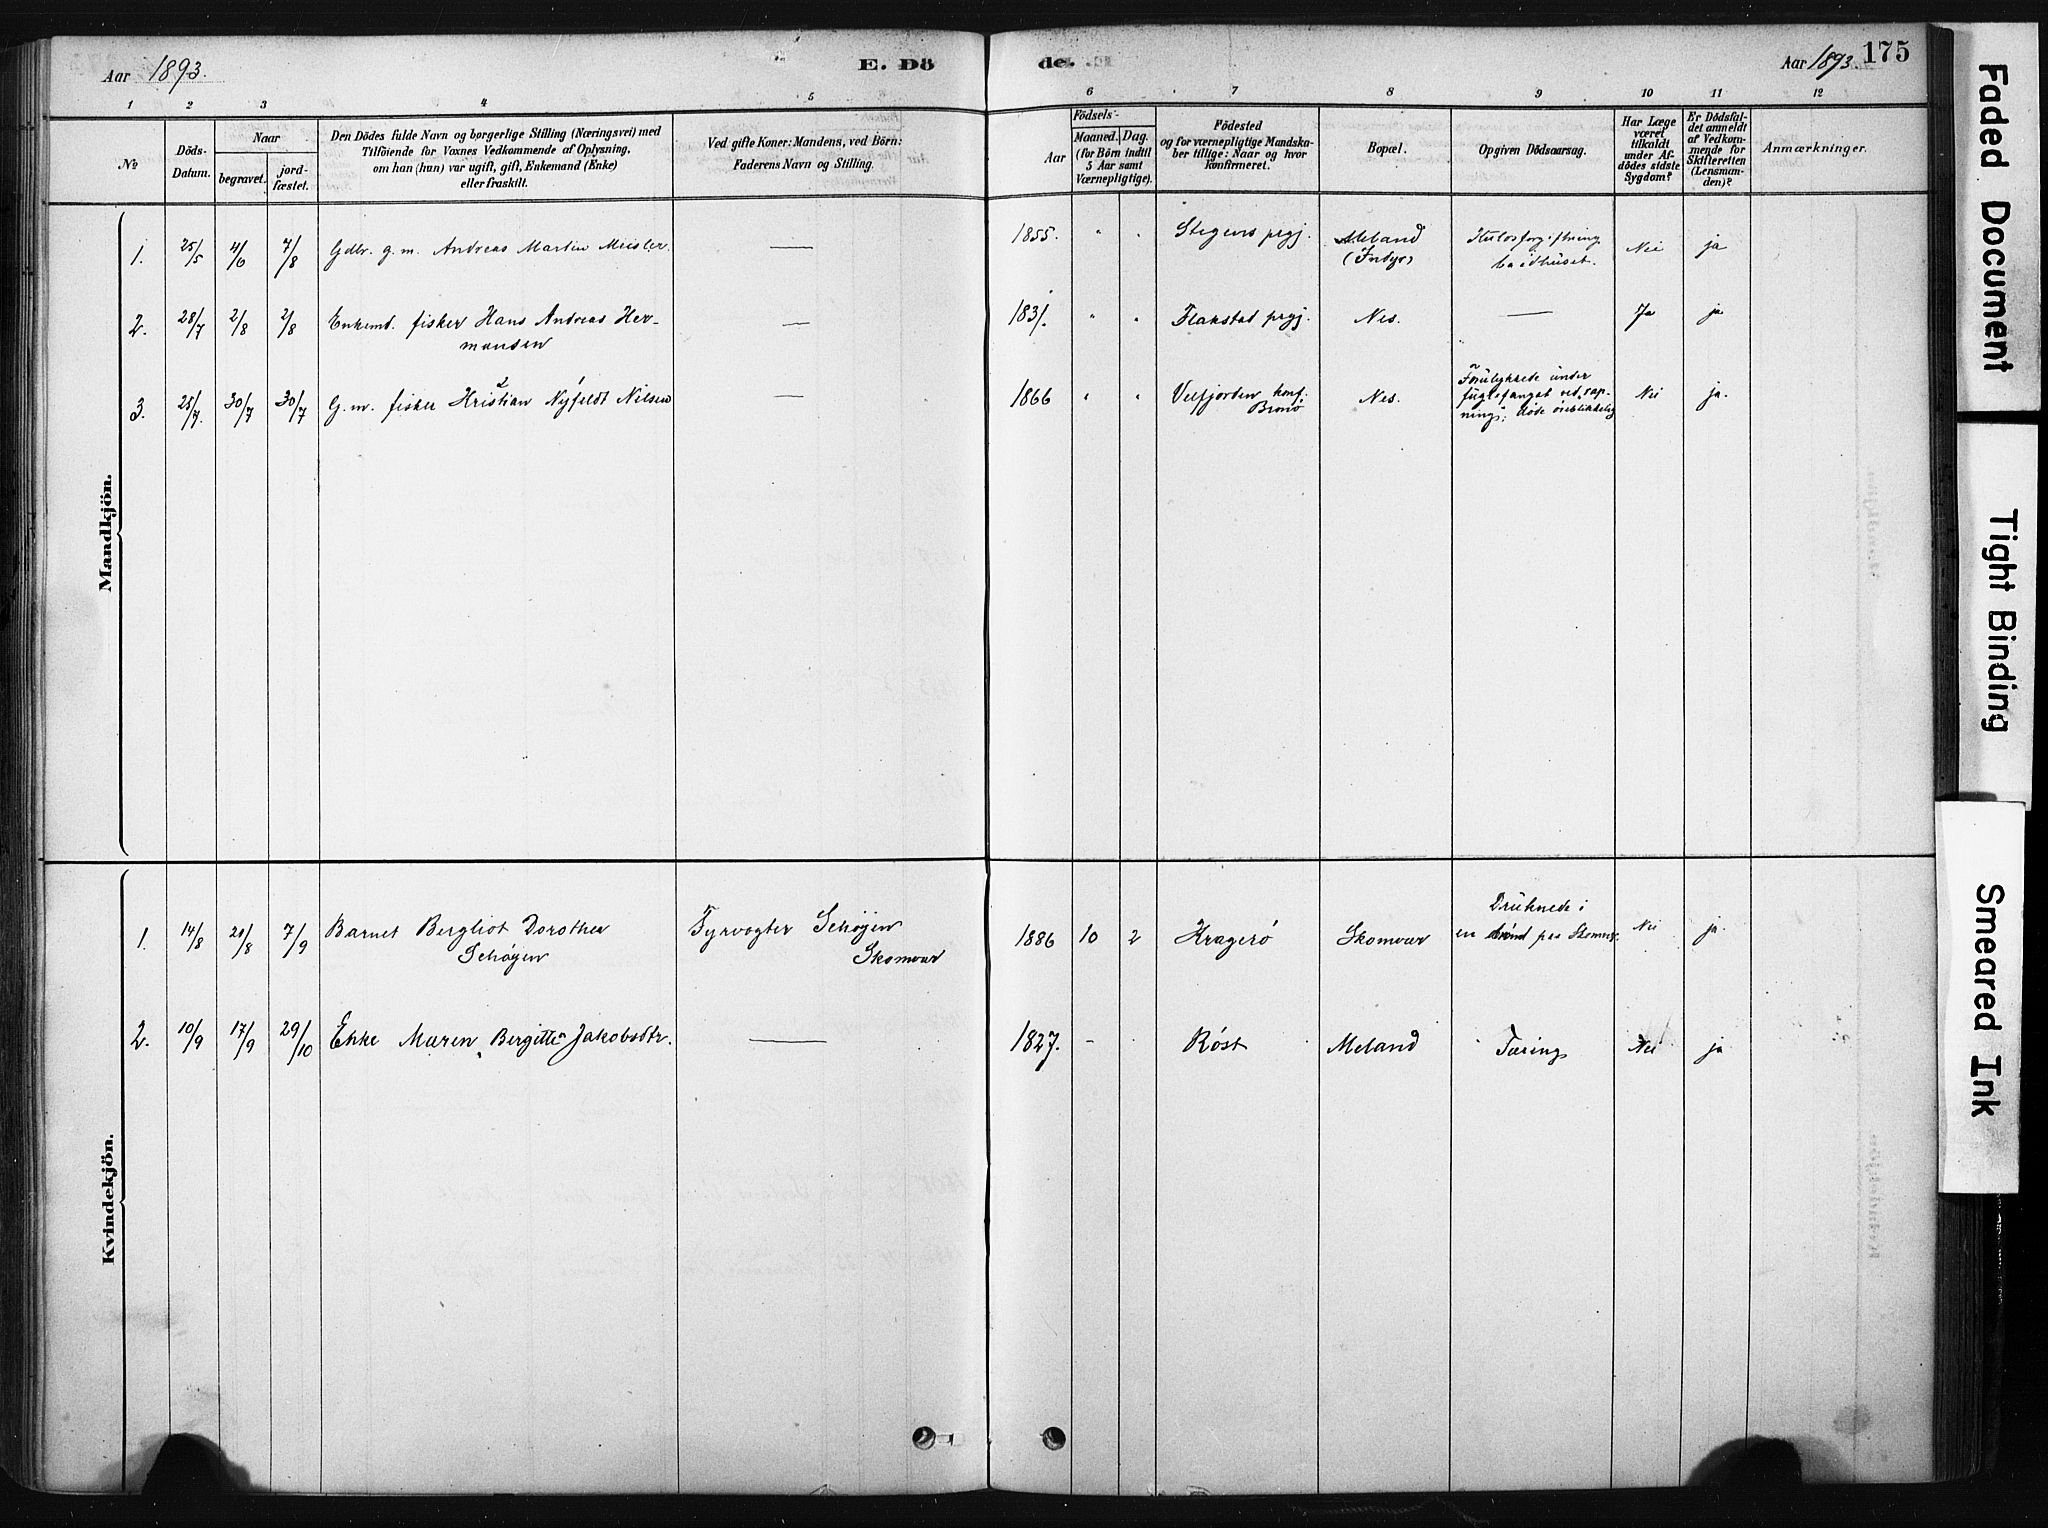 Aar 1893.
E. Dö
de.
Aar 1893.
175
1 2 3 4 5 6 7 8 9 10 11 12
No
Döds-
Datum.
Naar
begravet.
jord-
fæstet.
Den Dödes fulde Navn og borgerlige Stilling (Næringsvei) med
Tilföiende for Voxnes Vedkommende af Oplysning,
om han (hun) var ugift, gift, Enkemand (Enke)
eller fraskilt.
Ved gifte Koner: Mandens, ved Börn:
Faderens Navn og Stilling.
Födsels-
Aar
Maaned. Dag.
(for Börn indtil
5 Aar samt
Værnepligtige).
Födested
og for værnepligtige Mandska-
ber tillige: Naar og hvor
konfirmeret.
Bopæl.
Opgiven Dödsaarsag.
Har Læge
været
tilkaldt
under Af-
dödes sidste
Sygdom?
Er Dödsfal-
det anmeldt
af Vedkom-
mende for
Skifteretten
(Lensman-
den)?
Anmærkninger.
Mandkjön.
1. 25/5 4/6 7/8 Gdbr. g. m. Andreas Martin Meisler. — 1855. " " Stegens prgj. Meland
(Indyr)
Kulosforgiftning
baadhuset.
Nei ja
2. 28/7 2/8 2/8 Enkemd. fisker Hans Andreas Her-
mansen
— 1831. " " Flakstad prgj. Nes. — Ja ja
3. 25/7. 30/7 30/7 G. m. fisker Kristian Nyfeldt Nilsen — 1866 " " Velfjorden konf:
Brønø
Nes.
Forulykkede under
fuglefangst ved "rap-
ning"; døde øieblikkelig
Nei ja.
Kvindekjön.
1. 14/8 20/8 7/9 Barnet Bergliot Dorothea
Schøyen
Fyrvogter Schøyen
Skomvær
1886 10 2 Kragerø Skomvær
Druknede i
en brønd paa Skomvær.
Nei ja.
2. 10/9 17/9 29/10 Enke Maren Bergitte Jakobsdtr. — 1827. - . Røst Meland Tæring Nei ja
Faded Document
Tight Binding
Smeared Ink